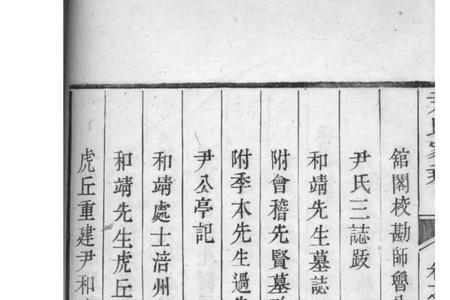 舘閣校勘師魯
尹氏三誌跋
和靖先生墓誌
附會稽先賢墓
附季本先生過
尹公亭記
和靖處士涪州
和靖先生虎丘
虎丘重建尹和